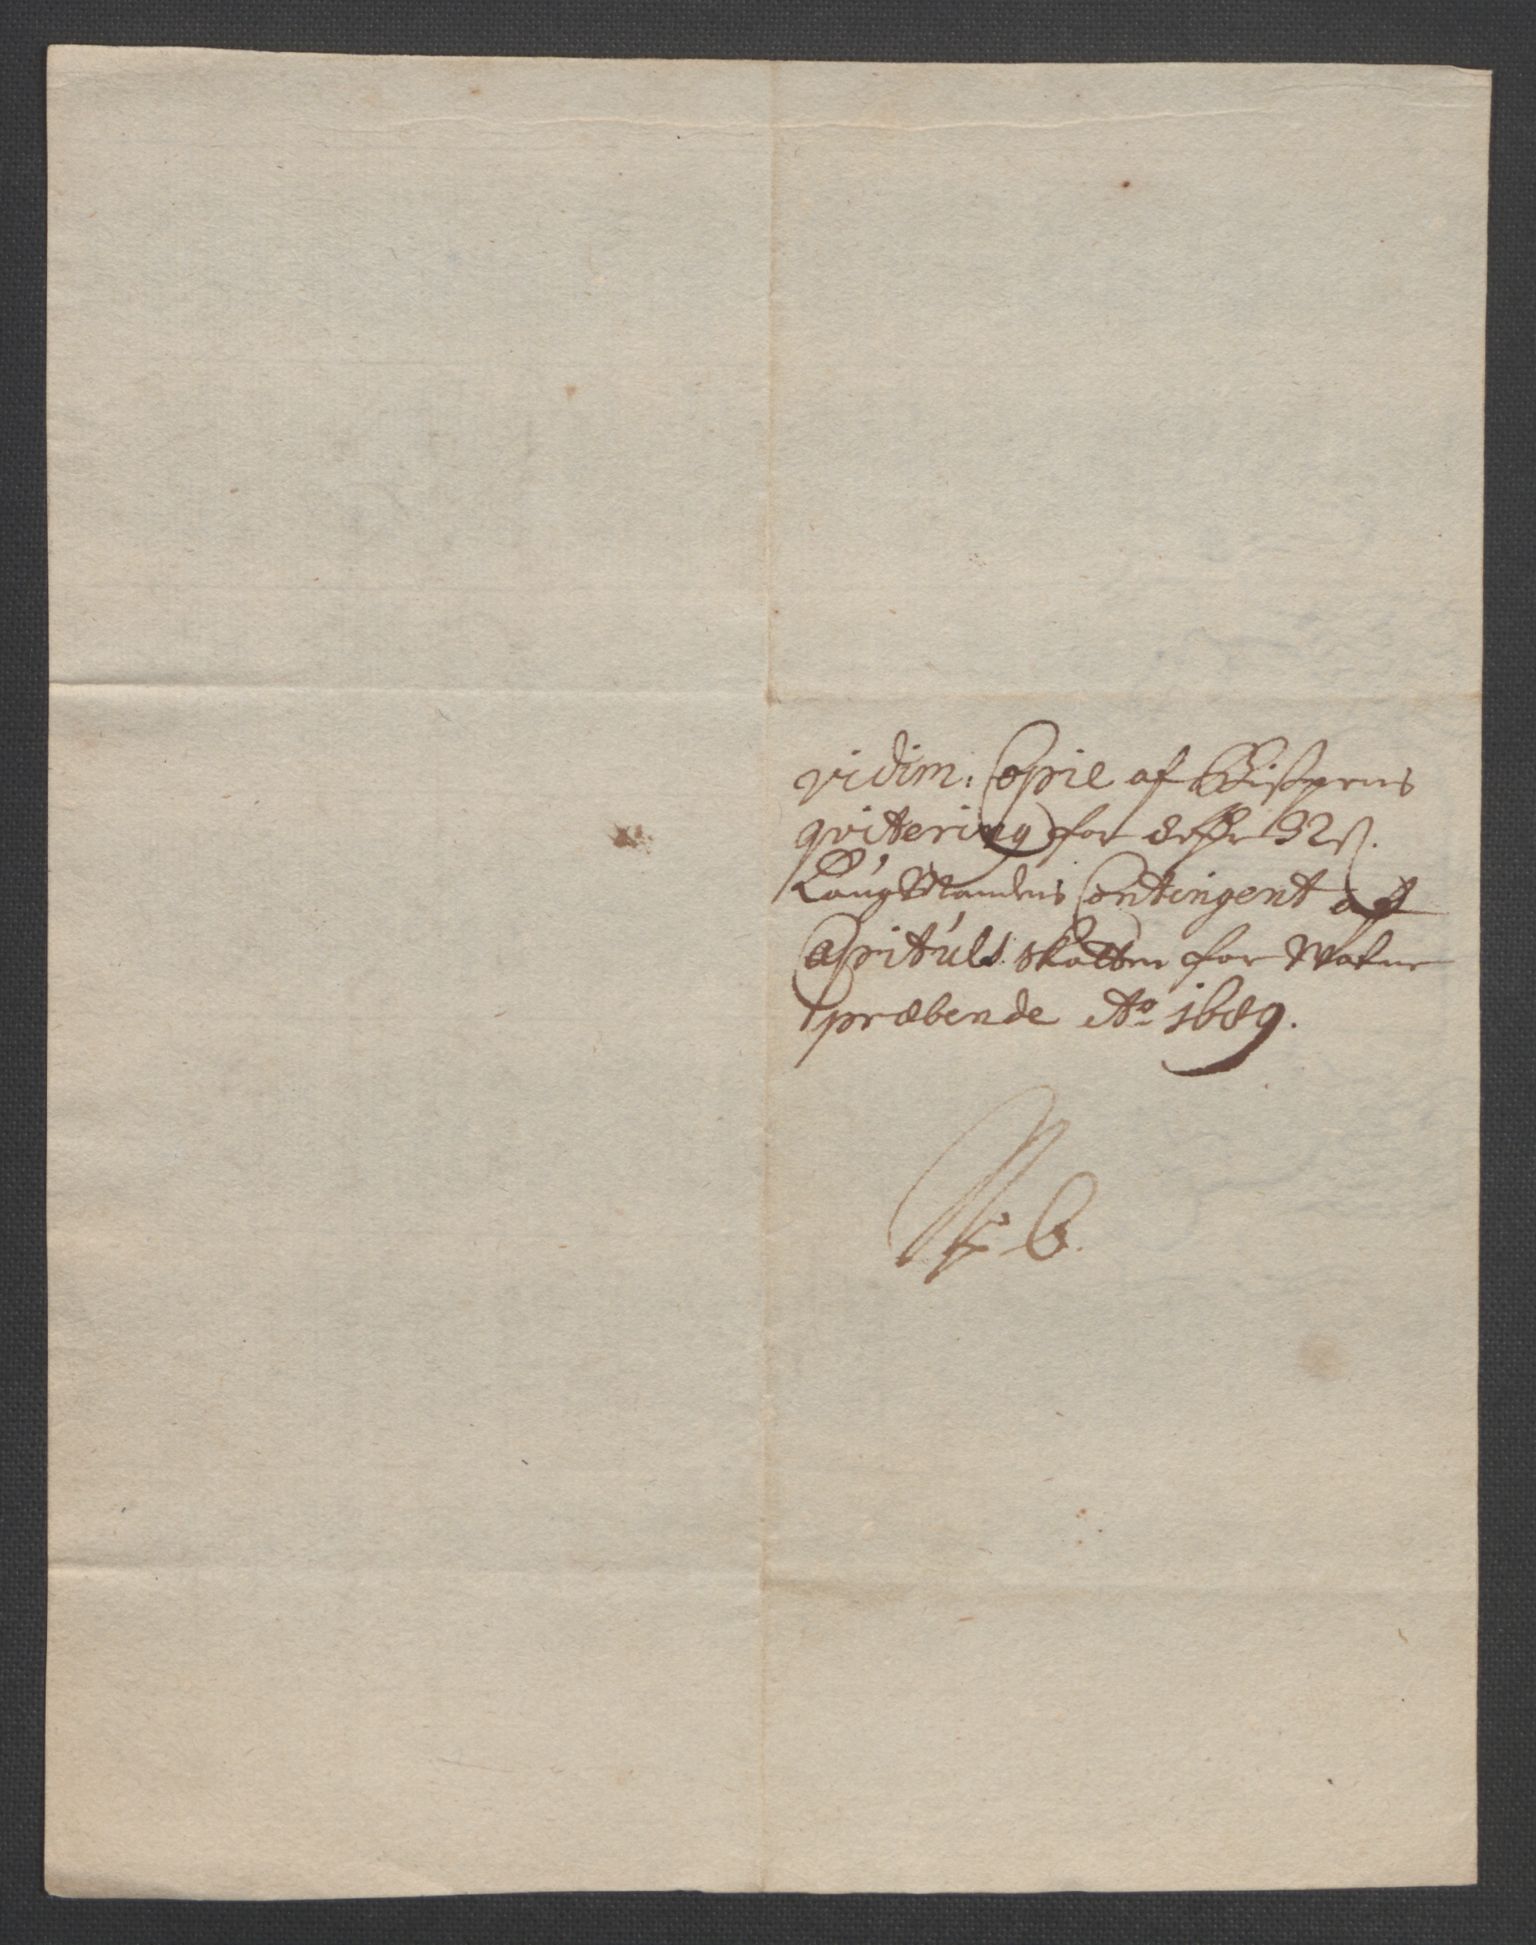 vidim: Copie af Bispens
qvitering for 32 ß.
Laugmandens Contingent aff
Capituls skatten for
præbende Ao 1689.